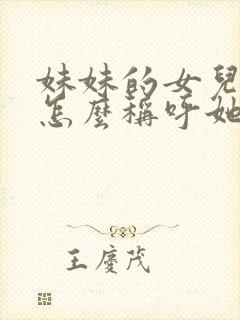 妹妹的女兒
怎麼稱呼她
王慶茂